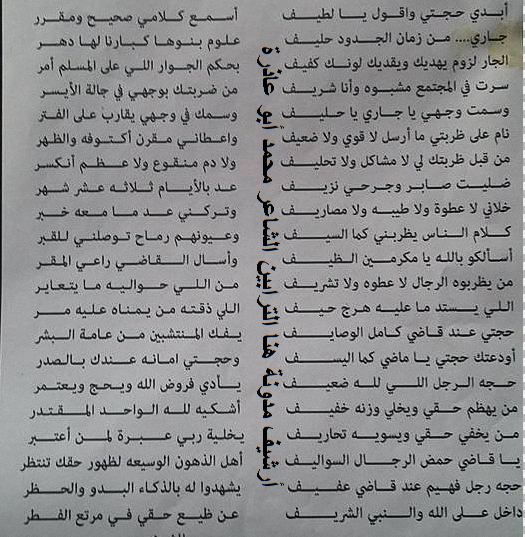 أبدي حجتي واقول يا لطيف أسمع كلامي صحيح ومقرر
جاري.... من زمان الجدود حليف علوم بنوها كبارنا لها دهر
الجار لزوم يهديك ويفديك لونك كفيف بحكم الجوار اللي على المسلم أمر
سرت في المجتمع مشبوه وأنا شريف من ضربتك بوجهي في جالة الأيسر
وسمت وجهي يا جاري يا حليف وسمك في وجهي يقارب على الفتر
نام على ظربتي ما أرسل لا قوي ولا ضعيف واعطاني مقرن أكتوفه والظهر
من قبل ظربتك لي لا مشاكل ولا تحليف ولا دم منقوع ولا عظم أنكسر
ضليت صابر وجرحي نزيف عد بالأيام ثلاثه عشر شهر
خلاني لا عطوة ولا طيبه ولا مصاريف وتركني عد ما معه خبر
كلام الناس يظربني كما السيف وعيونهم رماح توصلني للقبر
أسألكو بالله يا مكرمين الظيف وأسال القاضي راعي المقر
من يظربوه الرجال لا عطوه ولا تشريف من اللي حواليه ما يتعاير
اللي يستد ما عليه هرج حيف اللي ذقته من يمناه عليه مر
حجتي عند قاضي كامل الوصايف يفك المنتشبين من عامة البشر
أودعتك حجتي يا ماضي كما السيف وحجتي امانه عندك بالصدر
حجه الرجل اللي لله ضعيف يأدي فروض الله ويحج ويعتمر
من يهظم حقي ويخلي وزنه خفيف أشكيه لله الواحد المقتدر
من يخفي حقي ويسويه تحاريف يخلية ربي عبرة لمن أعتبر
يا قاضي حمض الرجال السواليف أهل الذهون الوسيعه لظهور حقك تنتظر
حجه رجل فهيم عند قاضي عفيف يشهدوا له بالذكاء البدو والحظر
داخل على الله والنبي الشريف عن ظيع حقي في مرتع الفطر
أرشيف مدونة هنا الترابين الشاعر محمد أبو عاذرة